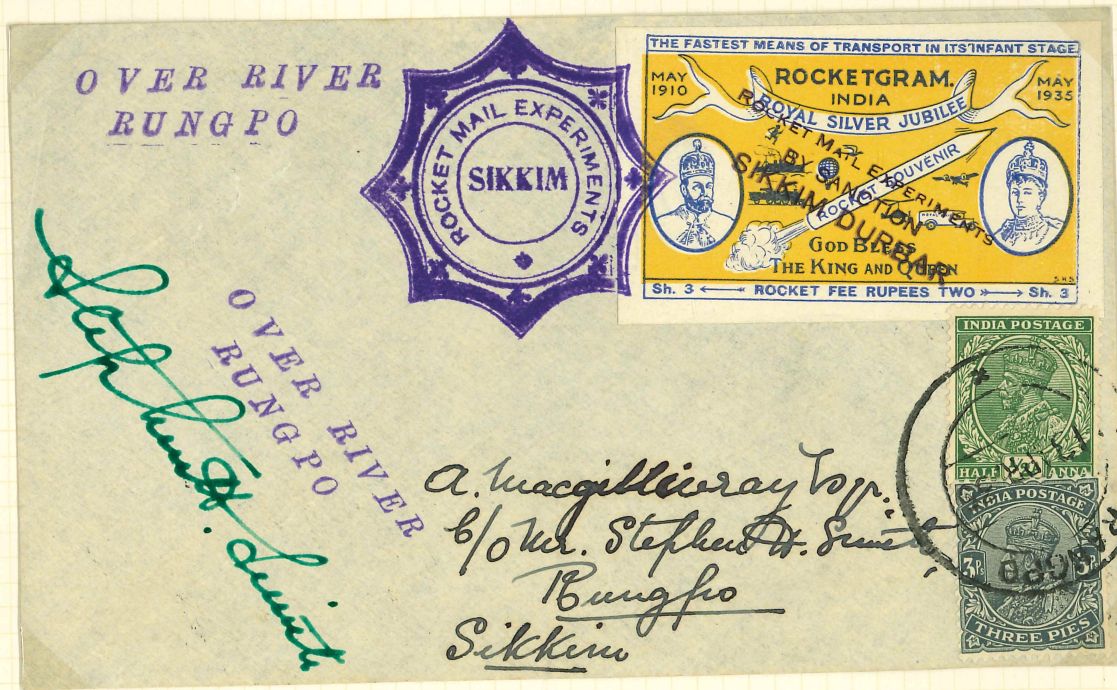 OVER RIVER
RUNGPO
ROCKET MAIL EXPERIMENTS
SIKKIM
THE FASTEST MEANS OF TRANSPORT IN ITS INFANT STAGE.
MAY
1910
ROCKETGRAM.
INDIA
MAY
1935
ROYAL SILVER JUBILEE
ROCKET SOUVENIR
ROCKET MAIL EXPERIMENTS
BY SANCTION
SIKKIM DURBAR
GOD BLESS
THE KING AND QUEEN
S.H.S.
Sh. 3 ROCKET FEE RUPEES TWO Sh. 3
Stephen H. Smith
OVER RIVER
RUNGPO
INDIA POSTAGE
HALF ANNA
INDIA POSTAGE
3P. 3P.
THREE PIES
A. Macgillivray Esqr.
C/o Mr. Stephen H. Smith
Rungpo
Sikkim